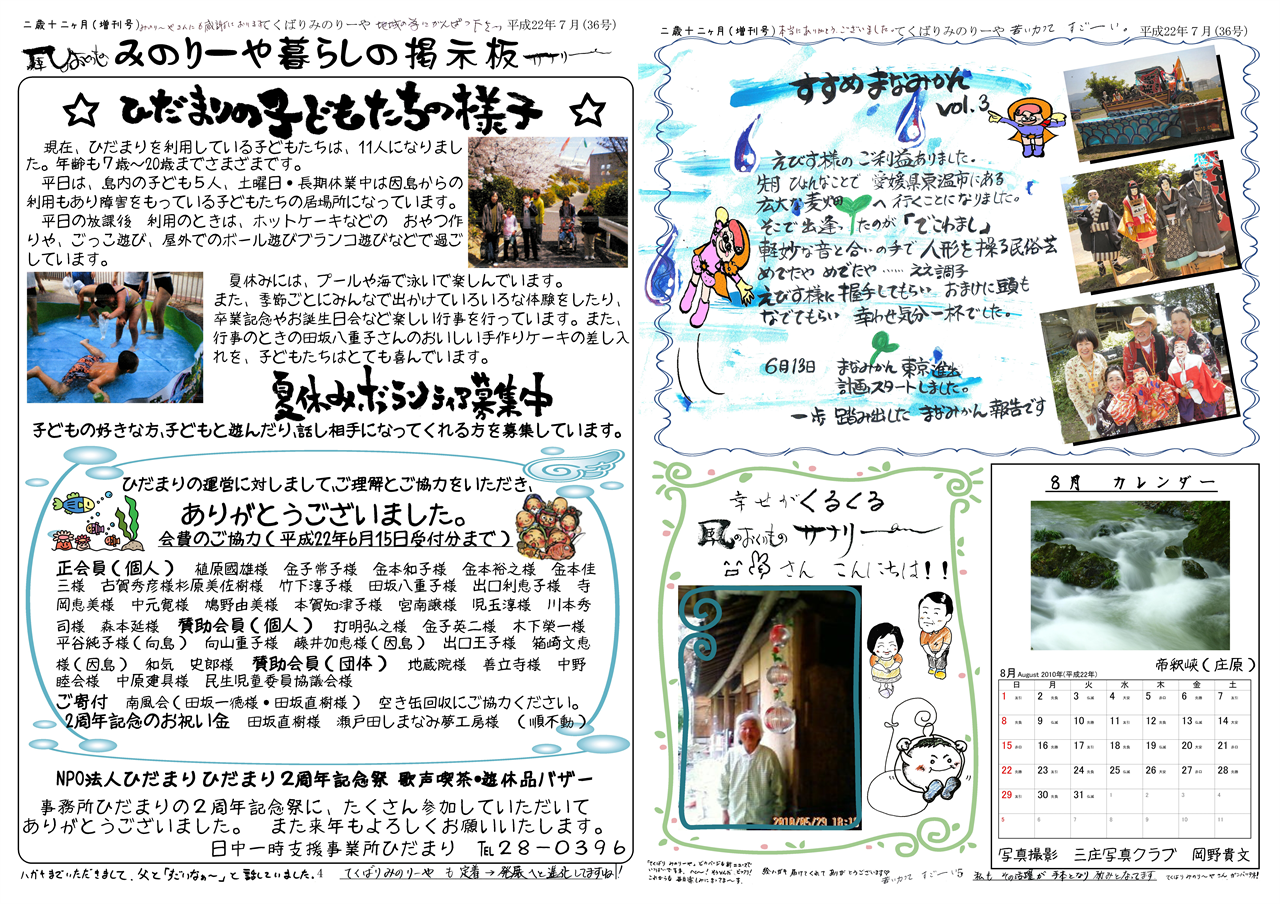 二歳十二ヶ月(増刊号)
てくばりみのりーや
平成22年7月(36号)
みのりーや暮らしの掲示板
☆ ひだまりの子どもたちの様子 ☆
現在、ひだまりを利用している子どもたちは、11人になりまし
た。年齢も7歳〜20歳までさまざまです。
平日は、島内の子ども5人、土曜日・長期休業中は因島からの
利用もあり障害をもっている子どもたちの居場所になっています。
平日の放課後 利用のときは、ホットケーキなどの おやつ作
りや、ごっこ遊び、屋外でのボール遊びブランコ遊びなどで過ご
しています。
夏休みには、プールや海で泳いで楽しんでいます。
また、季節ごとにみんなで出かけていろいろな体験をしたり、
卒業記念やお誕生日会など楽しい行事を行っています。また、
行事のときの田坂八重子さんのおいしい手作りケーキの差し入
れを、子どもたちはとても喜んでいます。
夏休みボランティア募集中
子どもの好きな方、子どもと遊んだり、話し相手になってくれる方を募集しています。
ひだまりの運営に対しまして、ご理解とご協力をいただき、
ありがとうございました。
会費のご協力(平成22年6月15日受付分まで)
正会員(個人) 植原國雄様 金子常子様 金本和子様 金本裕之様 金本佳
三様 古賀秀彦様杉原美佐樹様 竹下淳子様 田坂八重子様 出口利恵子様 寺
岡恵美様 中元寛様 鳩野由美様 本賀知津子様 宮南譲様 児玉淳様 川本秀
司様 森本延様 賛助会員(個人) 打明弘之様 金子英二様 木下榮一様
平谷純子様(向島) 向山重子様 藤井加恵様(因島) 出口王子様 箱崎文恵
様(因島) 和気 史郎様 賛助会員(団体) 地蔵院様 善立寺様 中野
睦会様 中原建具様 民生児童委員協議会様
ご寄付 南風会(田坂一徳様・田坂直樹様) 空き缶回収にご協力ください。
2周年記念のお祝い金 田坂直樹様 瀬戸田しまなみ夢工房様 (順不動)
NPO法人ひだまり ひだまり2周年記念祭 歌声喫茶・遊休品バザー
事務所ひだまりの2周年記念祭に、たくさん参加していただいて
ありがとうございました。 また来年もよろしくお願いいたします。
日中一時支援事業所ひだまり ℡28-0396
ハガキまでいただきまして、父と「すごいなぁ〜」と話していました。4
てくばりみのりーや も 定着→発展へと進化してますね!
二歳十二ヶ月(増刊号)本当にありがとうございました。てくばりみのりーや 若い力って すごーい。 平成22年7月(36号)
すすめまなみかん
vol.3
えびす様のご利益ありました。
先月 ひょんなことで 愛媛県東温市にある
広大な麦畑へ行くことになりました。
そこで出逢ったのが「でこまわし」
軽妙な音と合いの手で人形を操る民俗芸
めでたや めでたや……ええ調子
えびす様に握手してもらい おまけに頭も
なでてもらい 幸わせ気分一杯でした。
6月13日 まなみかん 東京進出
計画スタートしました。
一歩 踏み出した まなみかん報告です
幸せがくるくる
風のおくりもの サナリー
さん こんにちは!!
2010/05/29
8月 カレンダー
帝釈峡(庄原)
8月 August 2010年(平成22年)
日 月 火 水 木 金 土
1 2 3 4 5 6 7
8 9 10 11 12 13 14
15 16 17 18 19 20 21
22 23 24 25 26 27 28
29 30 31 1 2 3 4
5 6 7 8 9 10 11
写真撮影 三庄写真クラブ 岡野貴文
若い力って すごーい5